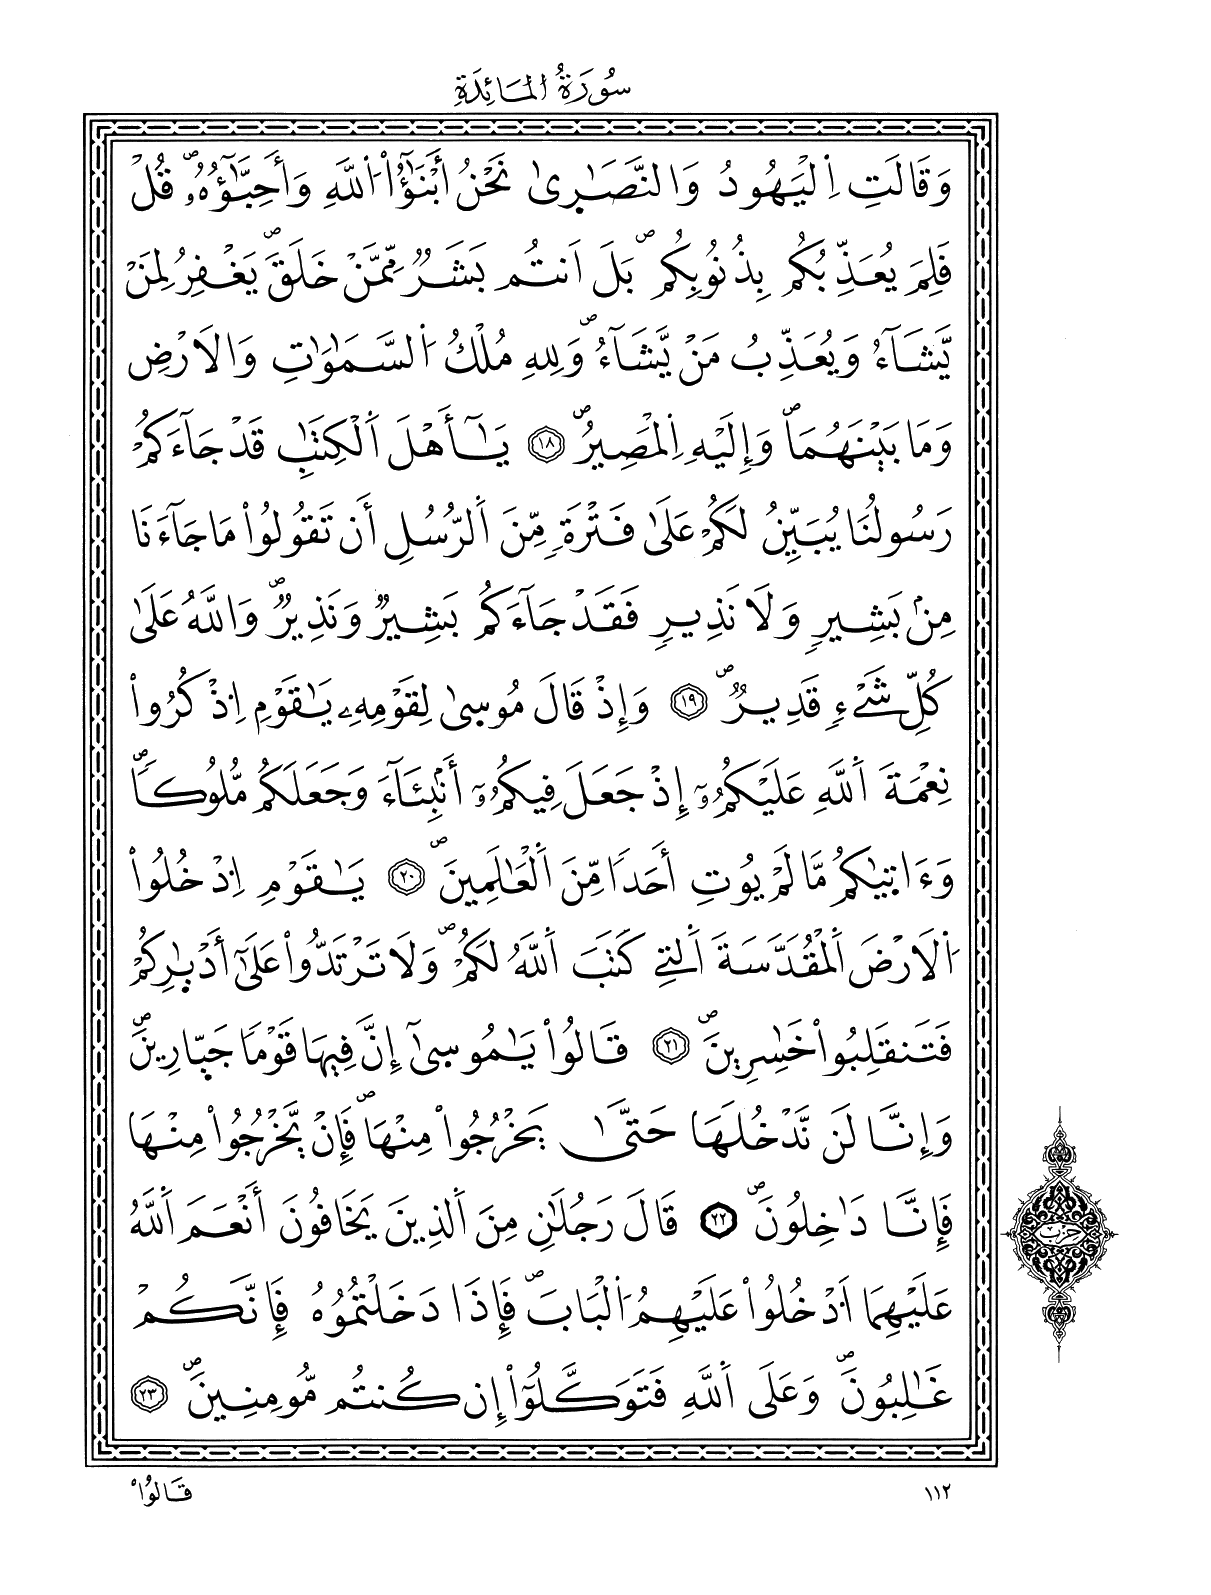 سُورَةُ الْمَائِدَةِ
وَقَالَتِ اِ۬لْيَهُودُ وَالنَّصَٰر۪ىٰ نَحْنُ أَبْنَٰٓؤُاْ اُ۬للَّهِ وَأَحِبَّٰٓؤُهُۥۖ قُلْ
فَلِمَ يُعَذِّبُكُم بِذُنُوبِكُمۖ بَلَ اَنتُم بَشَرٞ مِّمَّنْ خَلَقَۖ يَغْفِرُ لِمَنْ
يَّشَآءُ وَيُعَذِّبُ مَنْ يَّشَآءُۖ وَلِلهِ مُلْكُ اُ۬لسَّمَٰوَٰتِ وَالَارْضِ
وَمَا بَيْنَهُمَاۖ وَإِلَيْهِ اِ۬لْمَصِيرُۖ ١٨ يَٰٓأَهْلَ اَ۬لْكِتَٰبِ قَدْ جَآءَكُمْ
رَسُولُنَا يُبَيِّنُ لَكُمْ عَلَىٰ فَتْرَةٖ مِّنَ اَ۬لرُّسُلِ أَن تَقُولُواْ مَا جَآءَنَا
مِنۢ بَشِيرٖ وَلَا نَذِيرٖ فَقَدْ جَآءَكُم بَشِيرٞ وَنَذِيرٞۖ وَاللَّهُ عَلَىٰ
كُلِّ شَےْءٖ قَدِيرٞۖ ١٩ وَإِذْ قَالَ مُوس۪ىٰ لِقَوْمِهِۦ يَٰقَوْمِ اِ۟ذْكُرُواْ
نِعْمَةَ اَ۬للَّهِ عَلَيْكُمُۥٓ إِذْ جَعَلَ فِيكُمُۥٓ أَنۢبِئَآءَ وَجَعَلَكُم مُّلُوكاٗۖ
وَءَات۪يٰكُم مَّا لَمْ يُوتِ أَحَداٗ مِّنَ اَ۬لْعَٰلَمِينَۖ ٢٠ يَٰقَوْمِ اِ۟دْخُلُواْ
اُ۬لَارْضَ اَ۬لْمُقَدَّسَةَ اَ۬لتِے كَتَبَ اَ۬للَّهُ لَكُمْۖ وَلَا تَرْتَدُّواْ عَلَىٰٓ أَدْبٰ۪رِكُمْ
فَتَنقَلِبُواْ خَٰسِرِينَۖ ٢١ قَالُواْ يَٰمُوس۪ىٰٓ إِنَّ فِيهَا قَوْماٗ جَبّ۪ارِينَۖ
وَإِنَّا لَن نَّدْخُلَهَا حَتَّىٰ يَخْرُجُواْ مِنْهَاۖ فَإِنْ يَّخْرُجُواْ مِنْهَا
فَإِنَّا دَٰخِلُونَۖ ٢٢ قَالَ رَجُلَٰنِ مِنَ اَ۬لذِينَ يَخَافُونَ أَنْعَمَ اَ۬للَّهُ
عَلَيْهِمَا اَ۟دْخُلُواْ عَلَيْهِمُ اُ۬لْبَابَۖ فَإِذَا دَخَلْتُمُوهُ فَإِنَّكُمْ
غَٰلِبُونَۖ وَعَلَى اَ۬للَّهِ فَتَوَكَّلُوٓاْ إِن كُنتُم مُّومِنِينَۖ ٢٣
حزب
١١٢
قَالُواْ